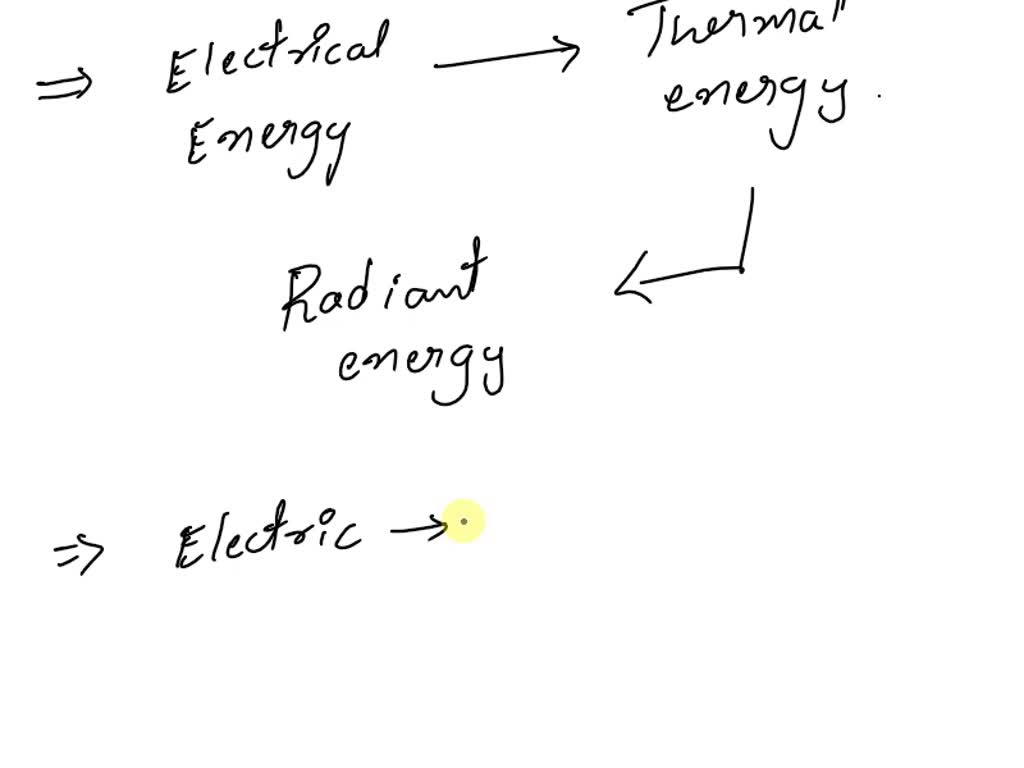 ⇒ Electrical → Thermal
Energy energy.
Radiant
energy
⇒ Electric →